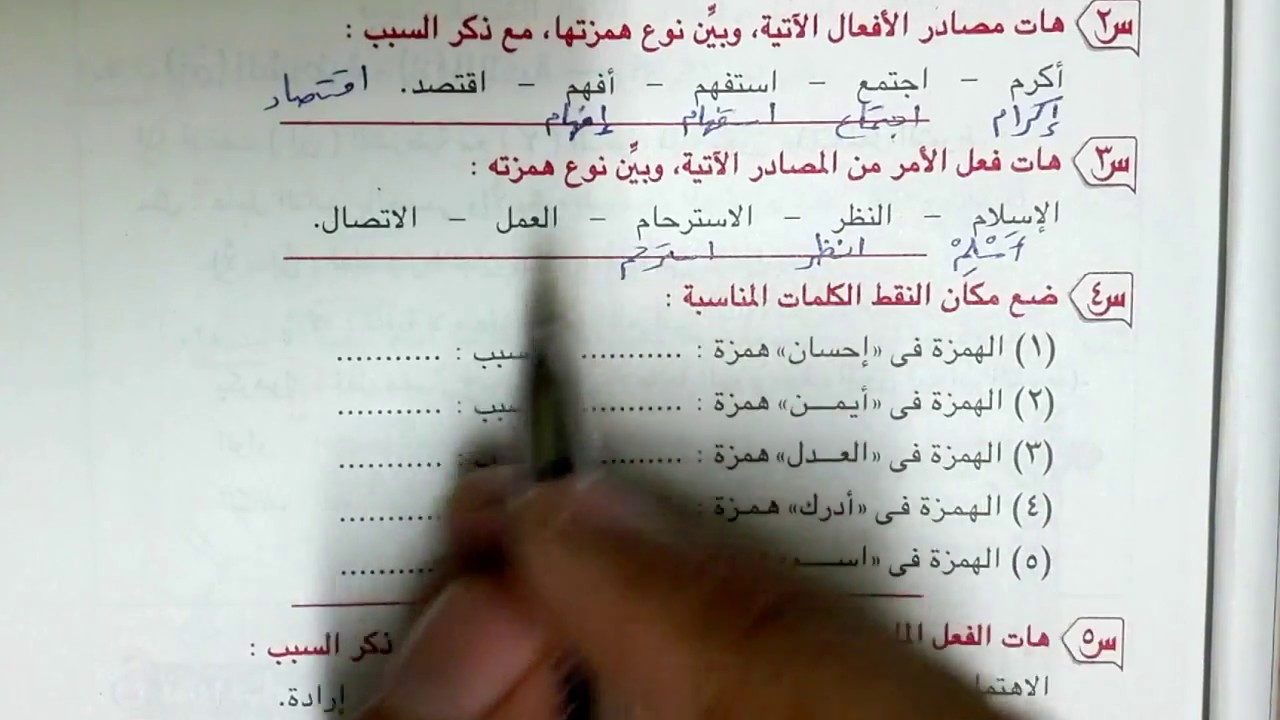 س٢ هات مصادر الأفعال الآتية، وبيِّن نوع همزتها، مع ذكر السبب :
أكرم – اجتمع – استفهم – أفهم – اقتصد. اقتصاد
إكرام اجتماع استفهام إفهام
س٣ هات فعل الأمر من المصادر الآتية، وبيِّن نوع همزته :
الإسلام – النظر – الاسترحام – العمل – الاتصال.
أَسْلِمْ انظر استرحم
س٤ ضع مكان النقط الكلمات المناسبة :
(١) الهمزة فى «إحسان» همزة : ........... سبب : ...........
(٢) الهمزة فى «أيمـن» همزة : ........... سبب : ...........
(٣) الهمزة فى «العـدل» همزة : ......... : ...........
(٤) الهمزة فى «أدرك» همزة : ...........
(٥) الهمزة فى ...........
س٥ هات الفعل ذكر السبب :
إرادة.